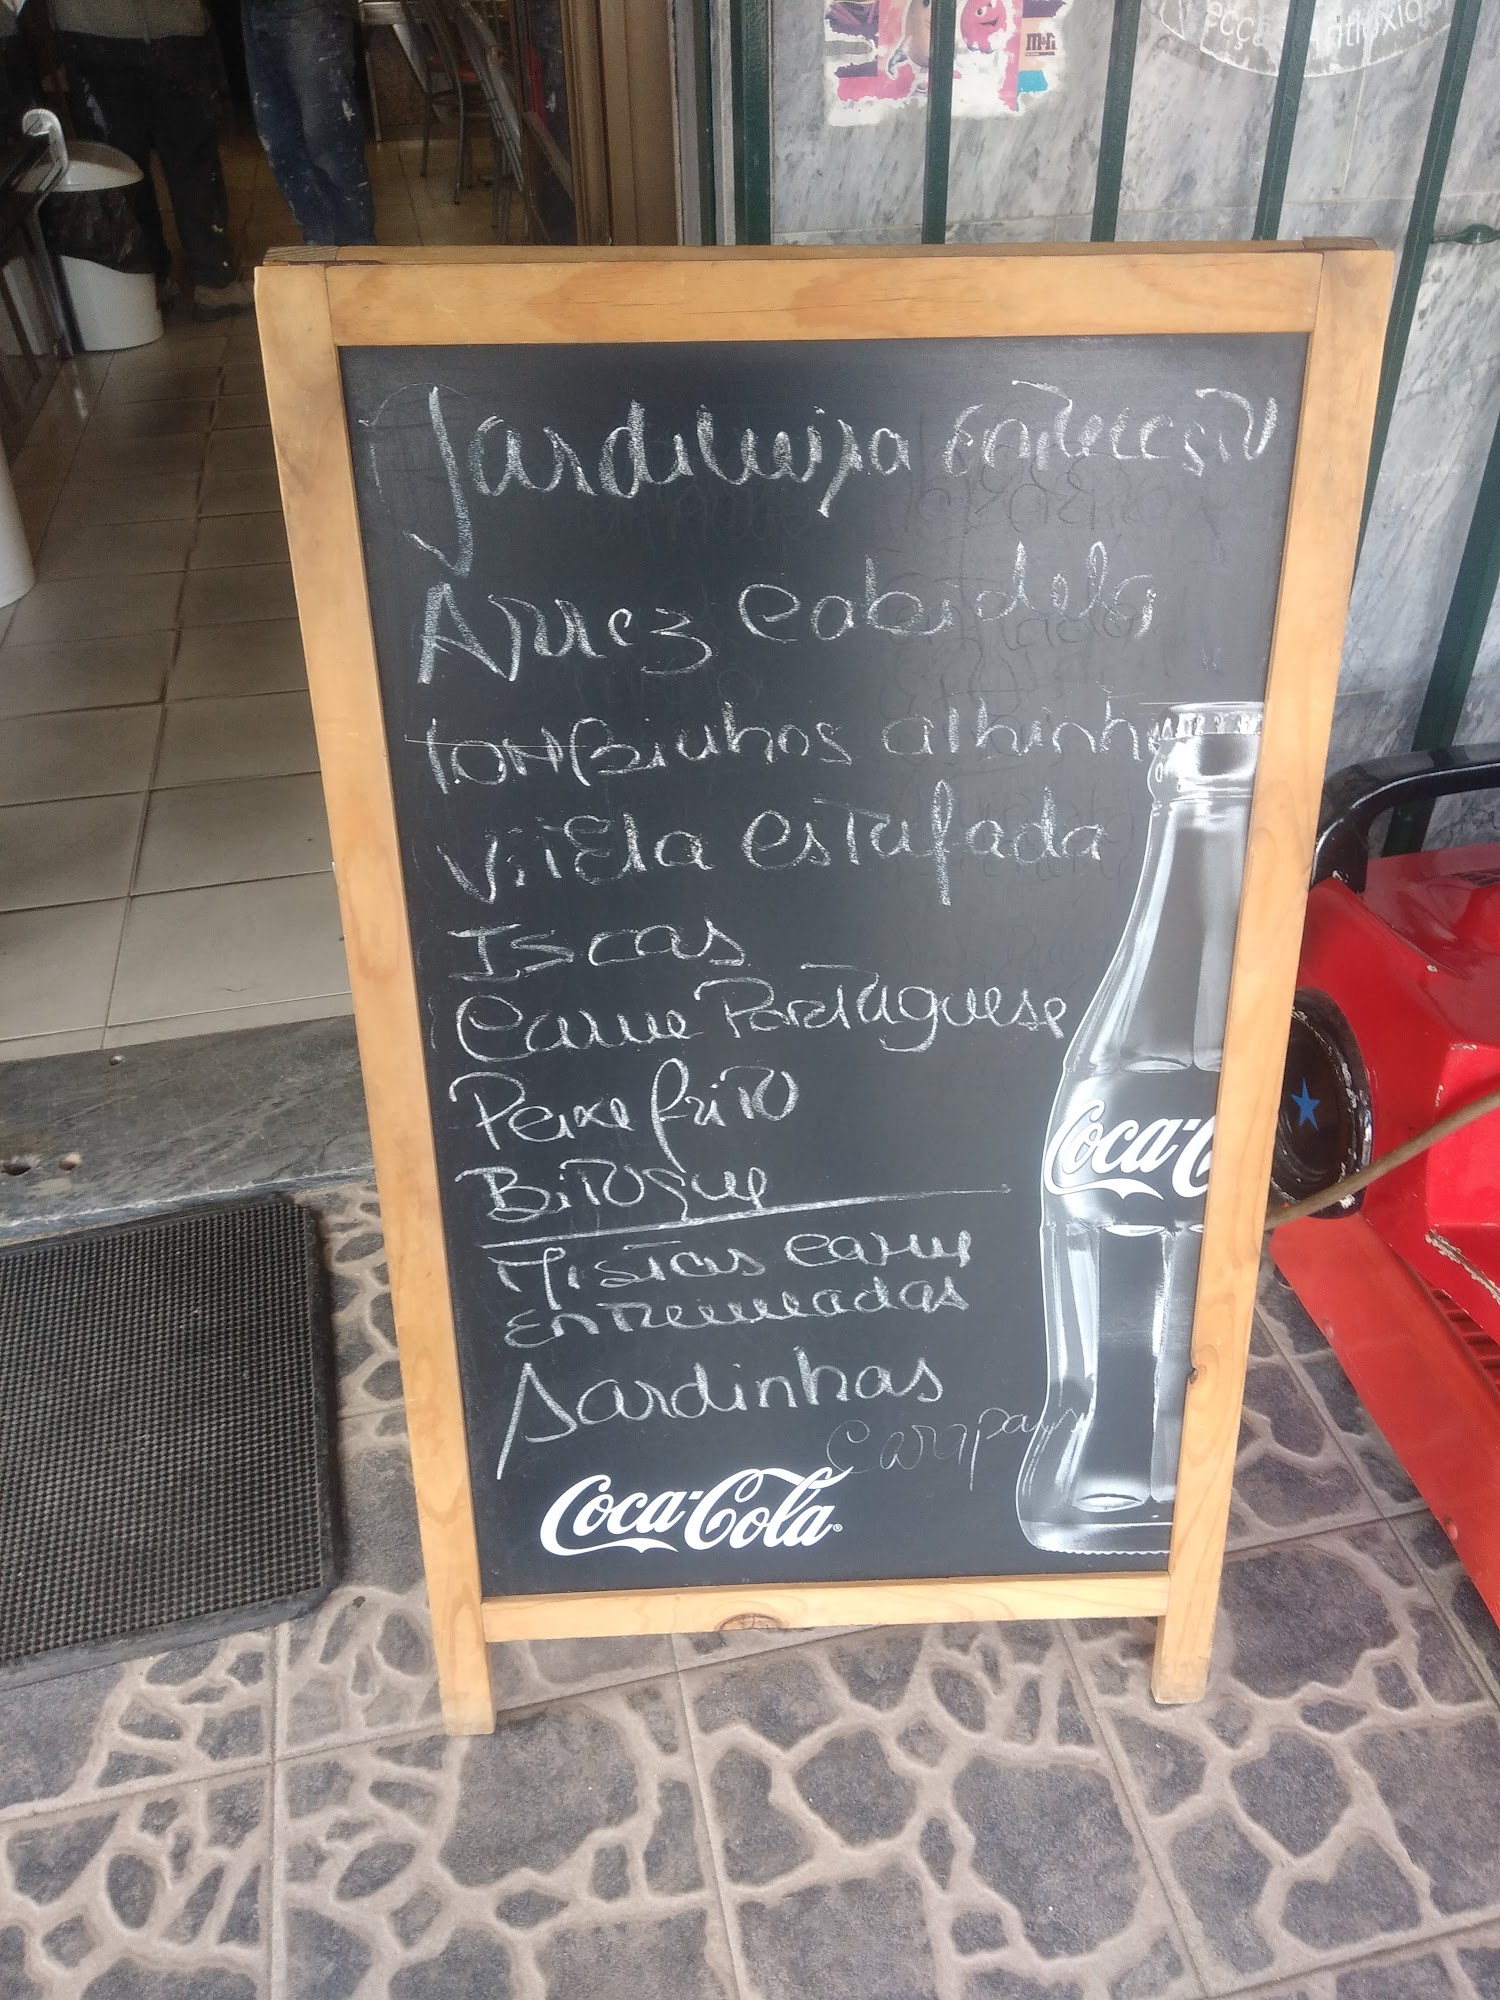 m&m
Jardineira entrecosto
Arroz Cabidela
Lombinhos alhinho
Vitela estufada
Iscas
Carne Portuguesa
Peixe frito
Bitoque
Mistas carne
entremeadas
Sardinhas
Carapau
Coca-Cola